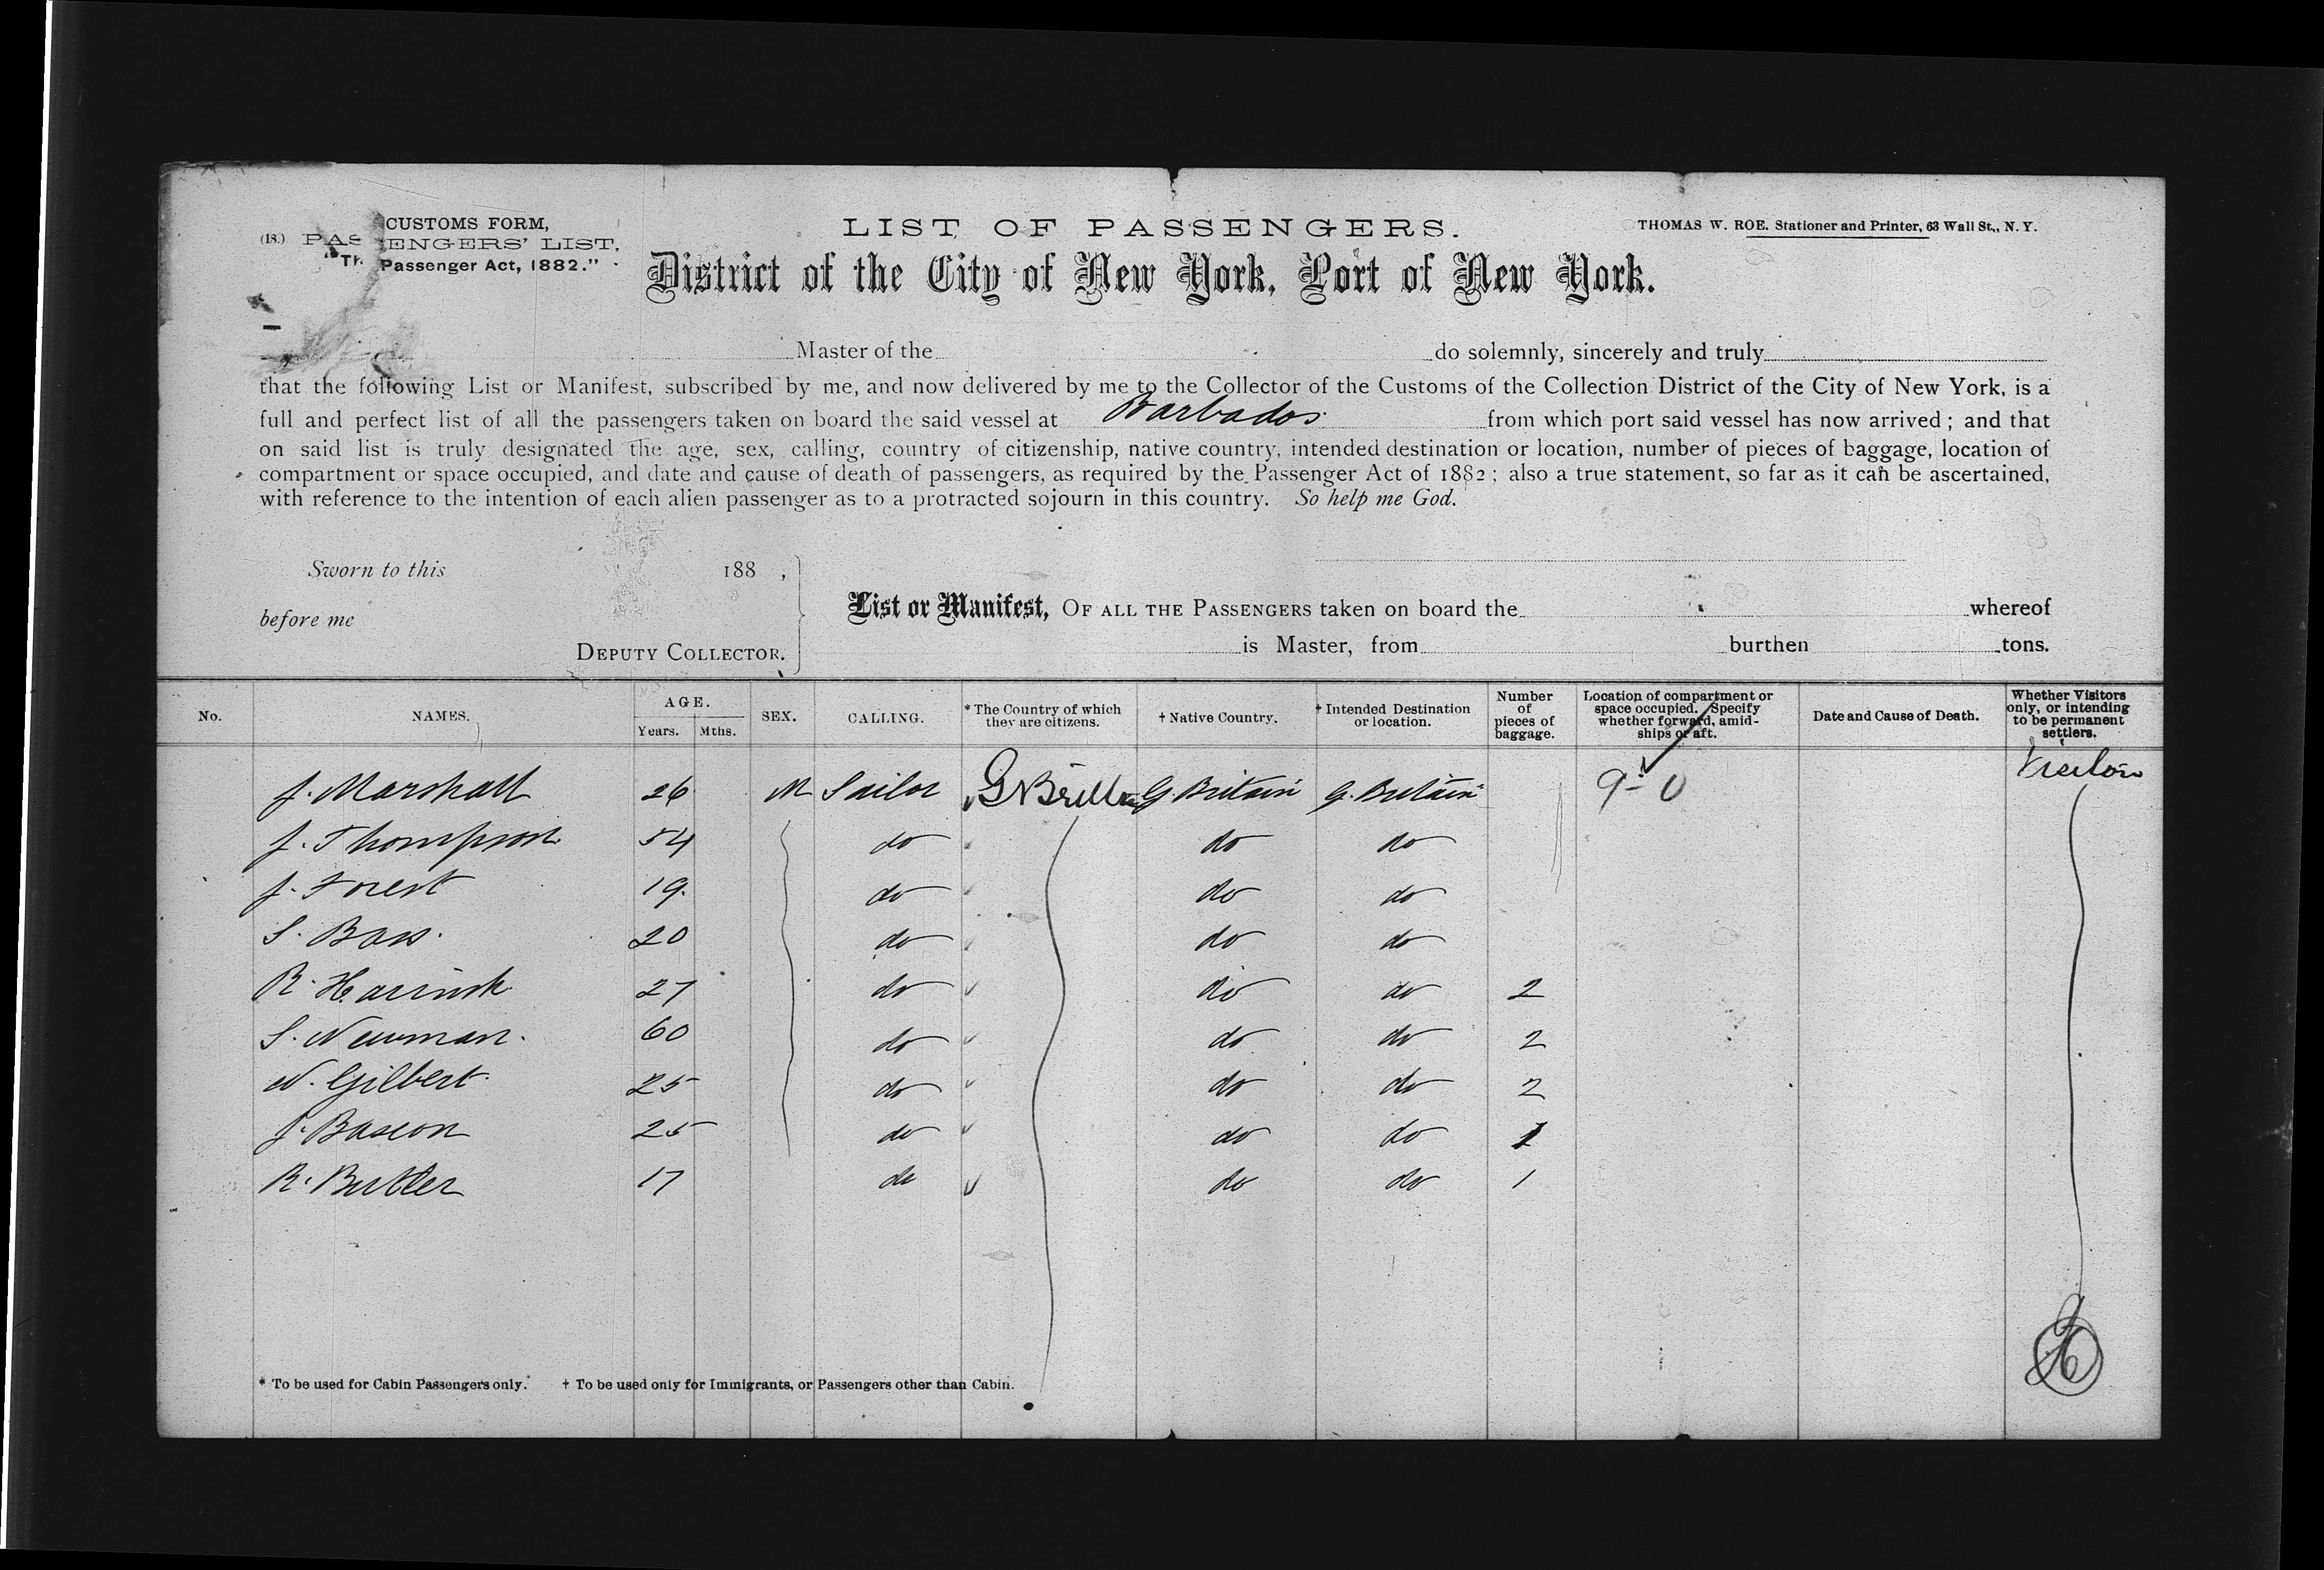 CUSTOMS FORM,
LIST OF PASSENGERS.
THOMAS W. ROE. Stationer and Printer, 63 Wall St., N. Y.
(18.) PAS ENGERS' LIST,
"Th Passenger Act, 1882."
District of the City of New York, Port of New York.
Master of the do solemnly, sincerely and truly
that the following List or Manifest, subscribed by me, and now delivered by me to the Collector of the Customs of the Collection District of the City of New York, is a
full and perfect list of all the passengers taken on board the said vessel at Barbados from which port said vessel has now arrived; and that
on said list is truly designated the age, sex, calling, country of citizenship, native country, intended destination or location, number of pieces of baggage, location of
compartment or space occupied, and date and cause of death of passengers, as required by the Passenger Act of 1882; also a true statement, so far as it can be ascertained,
with reference to the intention of each alien passenger as to a protracted sojourn in this country. So help me God.
Sworn to this 188 ,
before me
DEPUTY COLLECTOR.
List or Manifest, OF ALL THE PASSENGERS taken on board the whereof
is Master, from burthen tons.
No. NAMES. AGE. Years. Mths. SEX. CALLING. * The Country of which they are citizens. † Native Country. † Intended Destination or location. Number of pieces of baggage. Location of compartment or space occupied. Specify whether forward, amid-ships or aft. Date and Cause of Death. Whether Visitors only, or intending to be permanent settlers.
J. Marshall 26 M Sailor G. Britain G. Britain 9-0
J. Thompson 54 do do do
J. Forest 19 do do do
S. Bass 20 do do do
R. 27 do do do 2
S. Newman 60 do do do 2
W. Gilbert 25 do do do 2
J. Bascon 25 do do do 1
R. Butler 17 do do do 1
* To be used for Cabin Passengers only. † To be used only for Immigrants, or Passengers other than Cabin.